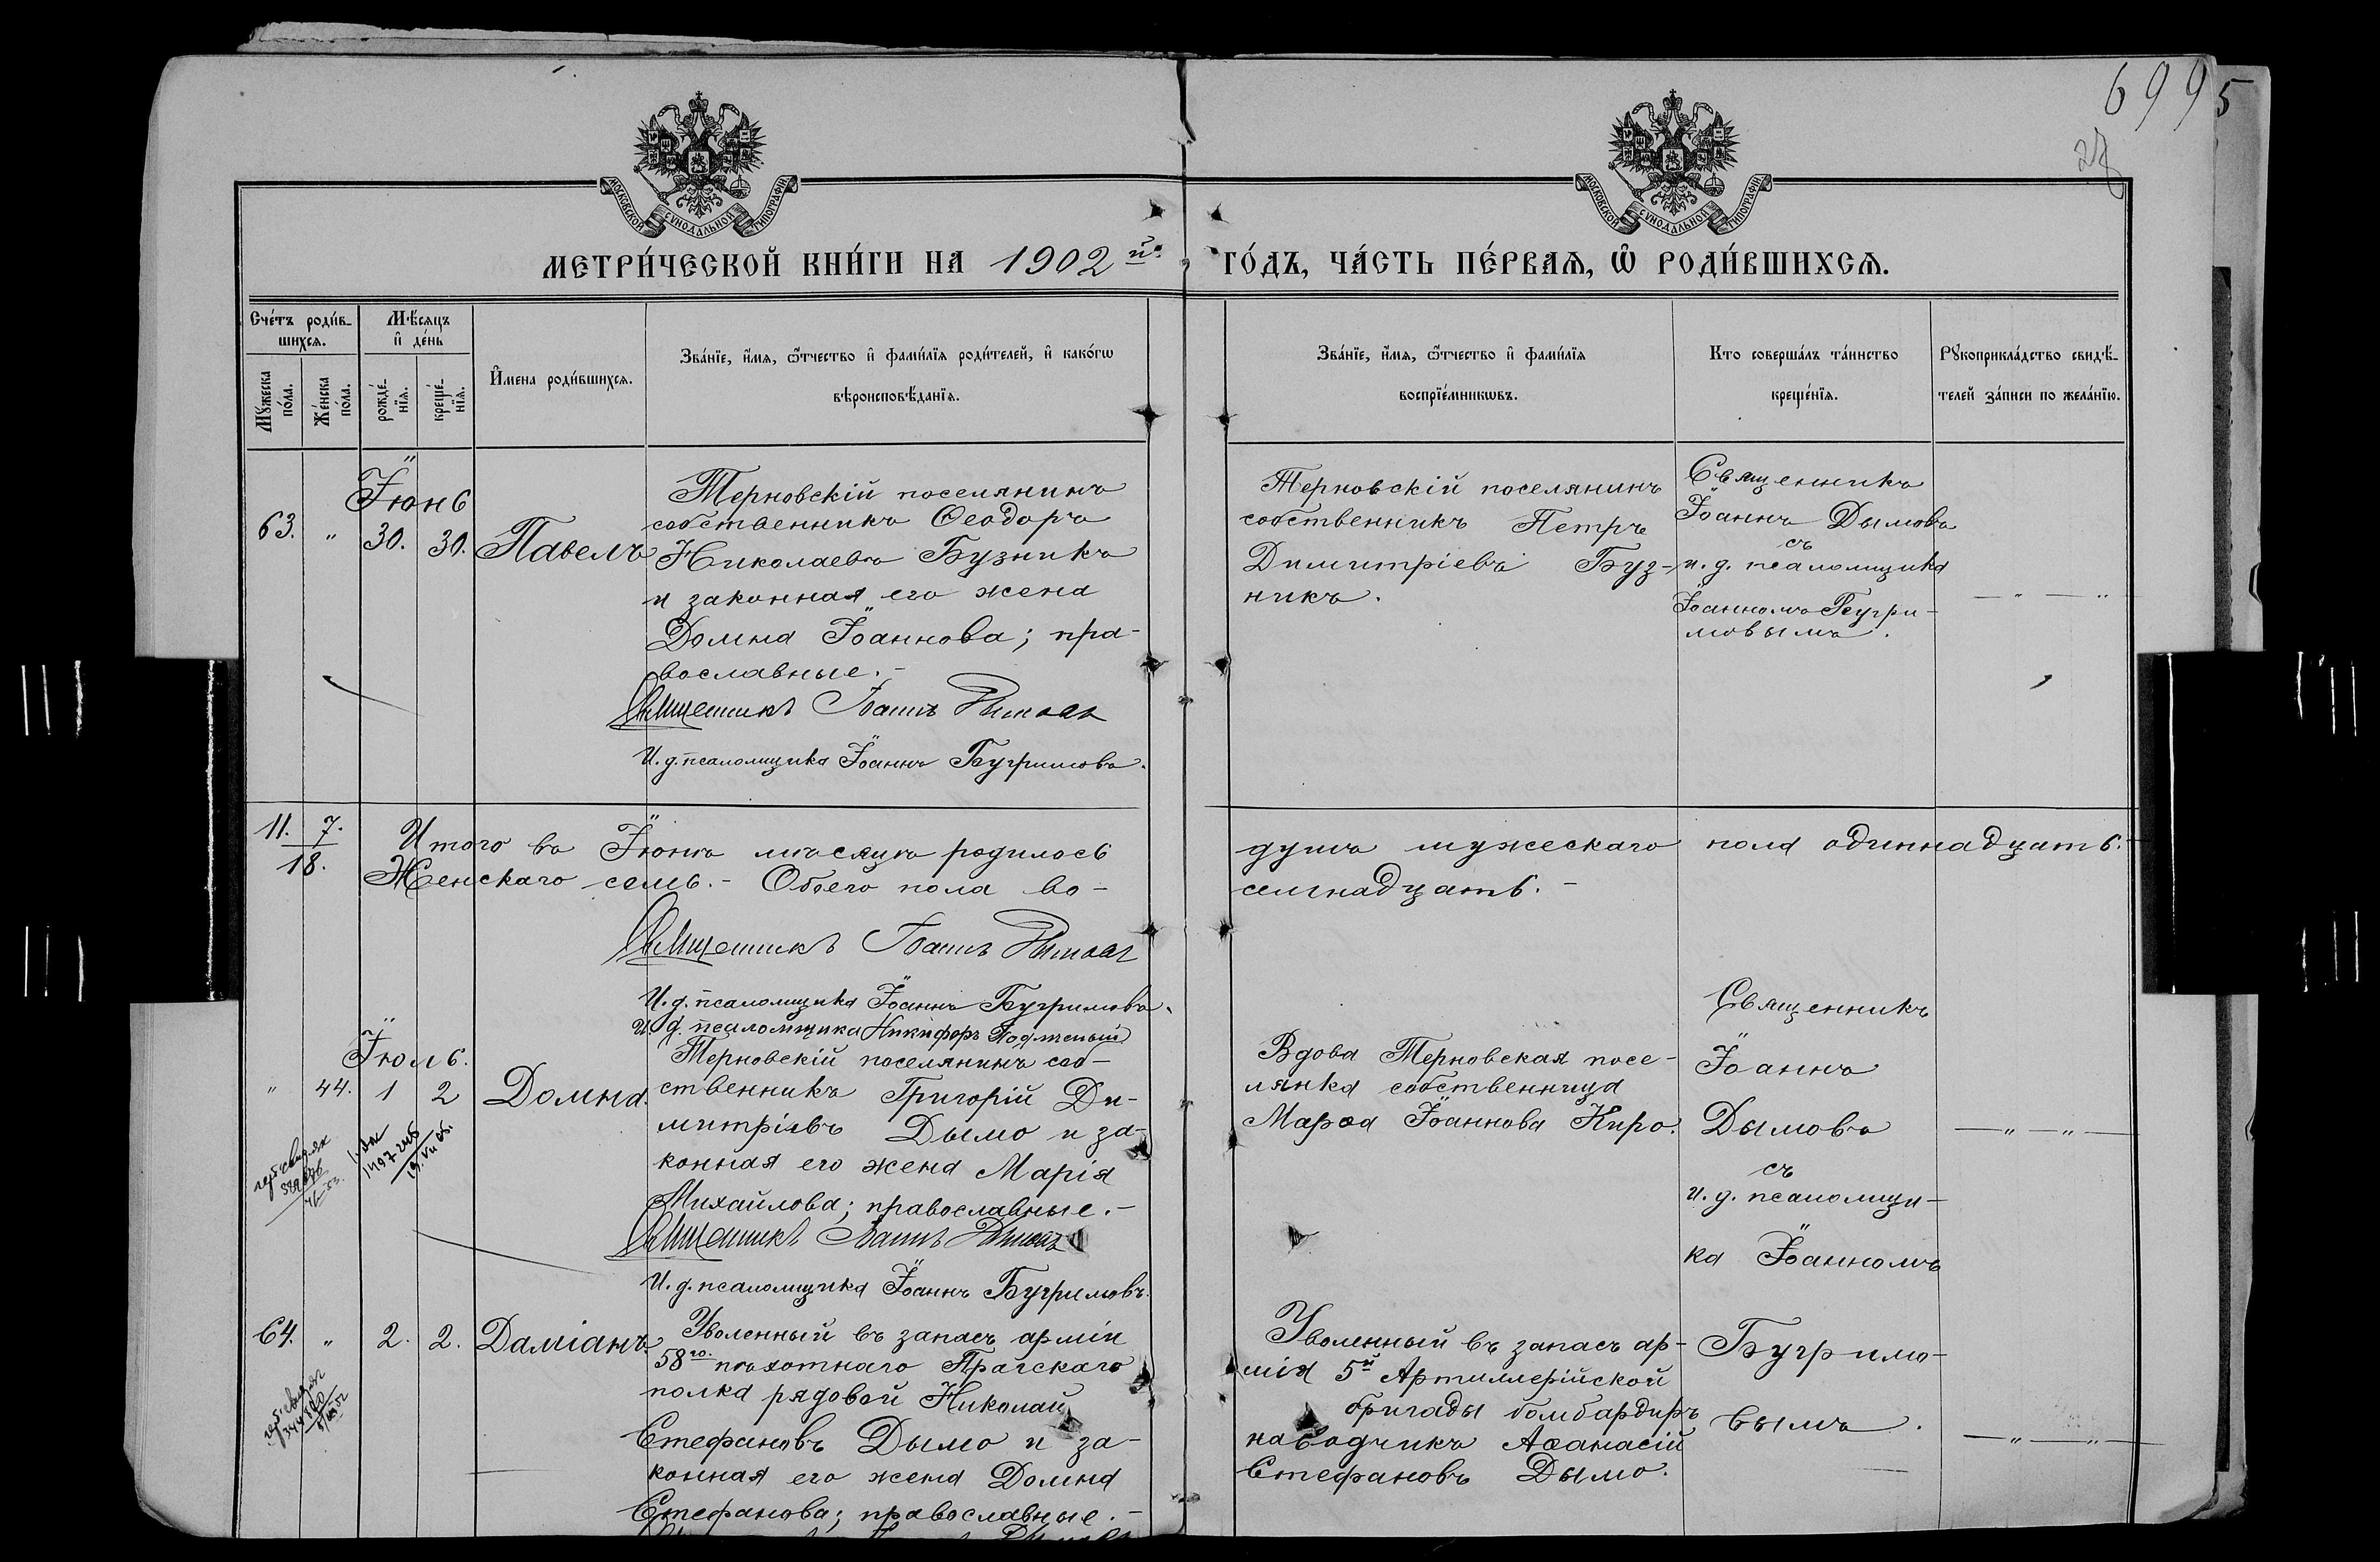 6995
28
МОСКОВСКОЙ СѴНОДАЛЬНОЙ ТИПОГРАФІИ
МОСКОВСКОЙ СѴНОДАЛЬНОЙ ТИПОГРАФІИ
МЕТРИ́ЧЕСКОЙ КНИ́ГИ НА 1902й. ГО́ДЪ, ЧА́СТЬ ПЕ́РВАѦ, Ѽ РОДИ́ВШИХСѦ.
Сче́тъ роди́в-
шихсѧ.
Мꙋ́жеска
по́ла.
Же́нска
по́ла.
Мѣ́сѧцъ
и҆ де́нь
рожде́-
нїѧ.
креще́-
нїѧ.
И҆мена роди́вшихсѧ.
Зва́нїе, и҆́мѧ, ѻ҆́тчество и҆ фами́лїѧ роди́телей, и҆ како́гѡ
вѣроисповѣ́данїѧ.
Зва́нїе, и҆́мѧ, ѻ҆́тчество и҆ фами́лїѧ
воспрїе́мникѡвъ.
Кто соверша́лъ та́инство
креще́нїѧ.
Рꙋкоприкла́дство свидѣ́-
телей за́писи по жела́нїю.
Іюнь
63. " 30. 30. Павелъ
Терновскій поселянинъ
собственникъ Ѳеодоръ
Николаевъ Бузникъ
и законная его жена
Домна Іоаннова; пра-
вославные.-
Священникъ Іоаннъ Дымовъ
И. д. псаломщика Іоаннъ Бугримовъ.
Терновскій поселянинъ
собственникъ Петръ
Димитріевъ Буз-
никъ.
Священникъ
Іоаннъ Дымовъ
съ
и. д. псаломщика
Іоанномъ Бугри-
мовымъ.
— " — "
11. 7.
18.
Итого въ Іюнѣ мѣсяцѣ родилось душъ мужескаго пола одиннадцать.
Женскаго семь.- Обоего пола во-семнадцать.-
Священникъ Іоаннъ Дымовъ
И. д. псаломщика Іоаннъ Бугримовъ.
И. д. псаломщика Никифоръ
Іюль.
" 44. 1 2 Домна.
Терновскій поселянинъ соб-
ственникъ Григорій Ди-
митріевъ Дымо и за-
конная его жена Марія
Михайлова; православные.-
Священникъ Іоаннъ Дымовъ
И. д. псаломщика Іоаннъ Бугримовъ.
Вдова Терновская посе-
лянка собственница
Марѳа Іоаннова Киро.
Священникъ
Іоаннъ
Дымовъ
съ
и. д. псаломщи-
ка Іоанномъ
Бугримо-
вымъ.
— " — " —
64. " 2. 2. Даміанъ.
Уволенный въ запасъ арміи
58го. пѣхотнаго Прагскаго
полка рядовой Николай
Стефановъ Дымо и за-
конная его жена Домна
Стефанова; православные.-
Уволенный въ запасъ ар-
мія 5й Артиллерійской
бригады бомбардиръ
наводчикъ Аѳанасій
Стефановъ Дымо.
— " — " —